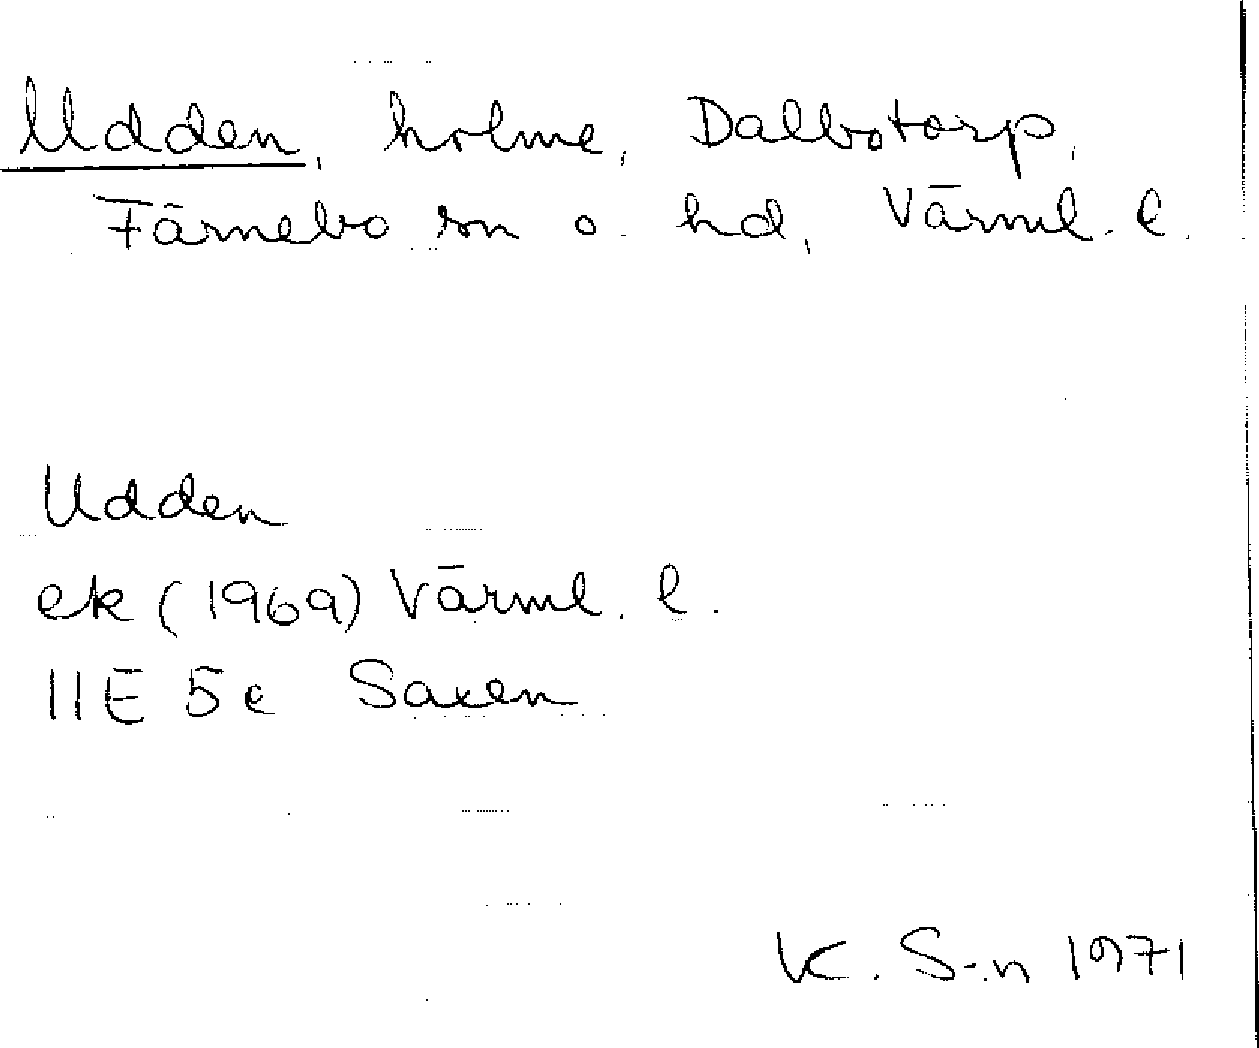 Udden, holme, Dalbotorp,
Färnebo sn o. hd, Värml. l.
Udden
ek (1969) Värml. l.
11E 5c Saxen
K. S-n 1971